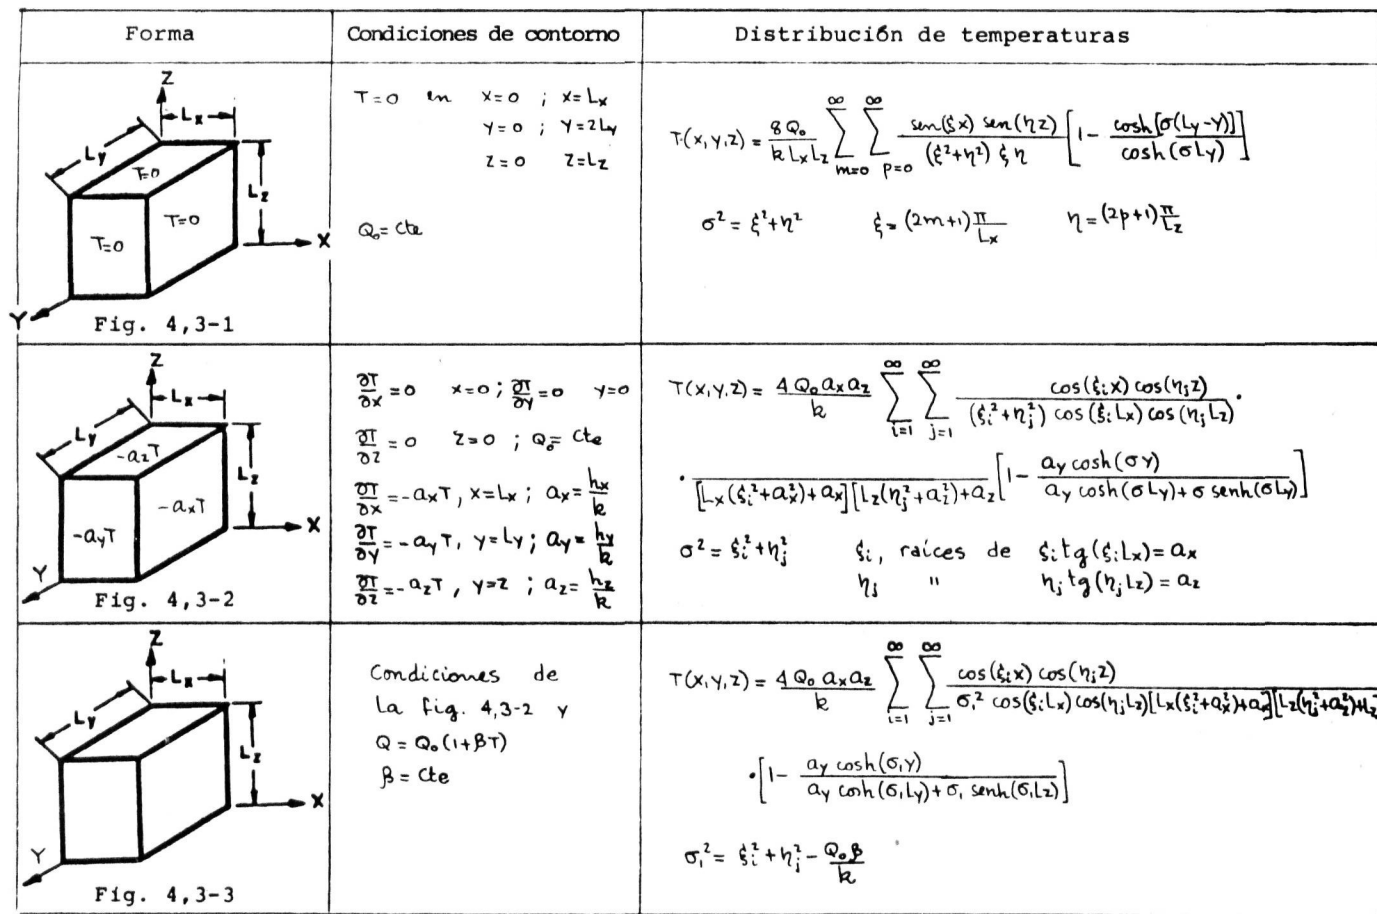 Forma
Condiciones de contorno
Distribución de temperaturas
Z
Lx
Ly
T=0
Lz
T=0
T=0
X
Y
Fig. 4,3-1
T=0 en x=0 ; x=Lx
y=0 ; y=2Ly
z=0 z=Lz
Q₀=Cte
T(x,y,z) = \frac{8Q₀}{k Lx Lz} \sum_{m=0}^{∞} \sum_{p=0}^{∞} \frac{sen(ξx) sen(ηz)}{(ξ²+η²) ξ η} [1 - \frac{cosh[σ(Ly-y)]}{cosh(σLy)}]
σ² = ξ²+η² ξ=(2m+1)\frac{π}{Lx} η=(2p+1)\frac{π}{Lz}
Z
Lx
Ly
-a_zT
Lz
-a_xT
-a_yT
X
Y
Fig. 4,3-2
\frac{∂T}{∂x}=0 x=0 ; \frac{∂T}{∂y}=0 y=0
\frac{∂T}{∂z}=0 z=0 ; Q₀=Cte
\frac{∂T}{∂x}=-a_xT, x=Lx ; a_x=\frac{h_x}{k}
\frac{∂T}{∂y}=-a_yT, y=Ly ; a_y=\frac{h_y}{k}
\frac{∂T}{∂z}=-a_zT, y=z ; a_z=\frac{h_z}{k}
T(x,y,z) = \frac{4 Q₀ a_x a_z}{k} \sum_{i=1}^{∞} \sum_{j=1}^{∞} \frac{cos(ξ_i x) cos(η_j z)}{(ξ_i²+η_j²) cos(ξ_i Lx) cos(η_j Lz)} ·
· \frac{}{[Lx(ξ_i²+a_x²)+a_x][Lz(η_j²+a_z²)+a_z} [1 - \frac{a_y cosh(σy)}{a_y cosh(σLy)+σ senh(σLy)}]
σ² = ξ_i²+η_j² ξ_i, raíces de ξ_i tg(ξ_i Lx)= a_x
η_j " η_j tg(η_j Lz) = a_z
Z
Lx
Ly
Lz
X
Y
Fig. 4,3-3
Condiciones de
la fig. 4,3-2 y
Q = Q₀(1+βT)
β = Cte
T(x,y,z) = \frac{4 Q₀ a_x a_z}{k} \sum_{i=1}^{∞} \sum_{j=1}^{∞} \frac{cos(ξ_i x) cos(η_j z)}{σ₁² cos(ξ_i Lx) cos(η_j Lz)[Lx(ξ_i²+a_x²)+a_x][Lz(η_j²+a_z²)+Lz}
· [1 - \frac{a_y cosh(σ₁y)}{a_y cosh(σ₁Ly)+σ₁ senh(σ₁Lz)}]
σ₁² = ξ_i²+η_j² - \frac{Q₀β}{k}